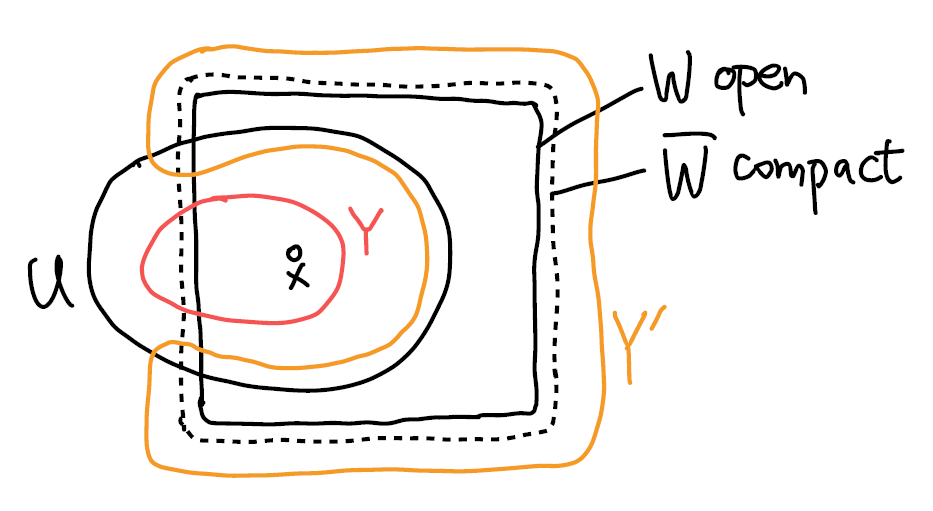 W open
W̅ compact
Y
x
U
Y′